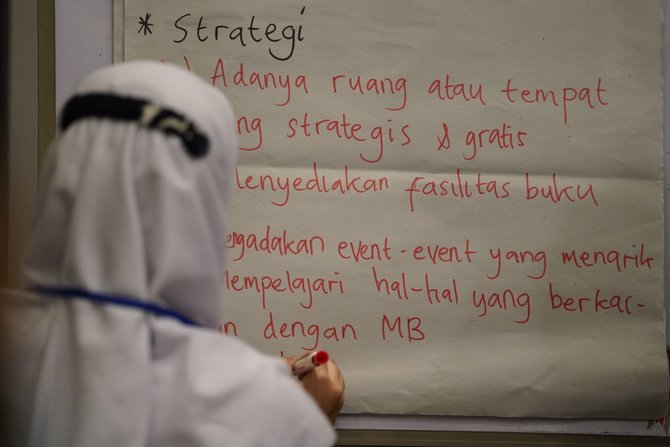 * Strategi
) Adanya ruang atau tempat
ng strategis & gratis
enyediakan fasilitas buku
engadakan event-event yang menarik
empelajari hal-hal yang berkai-
n dengan MB